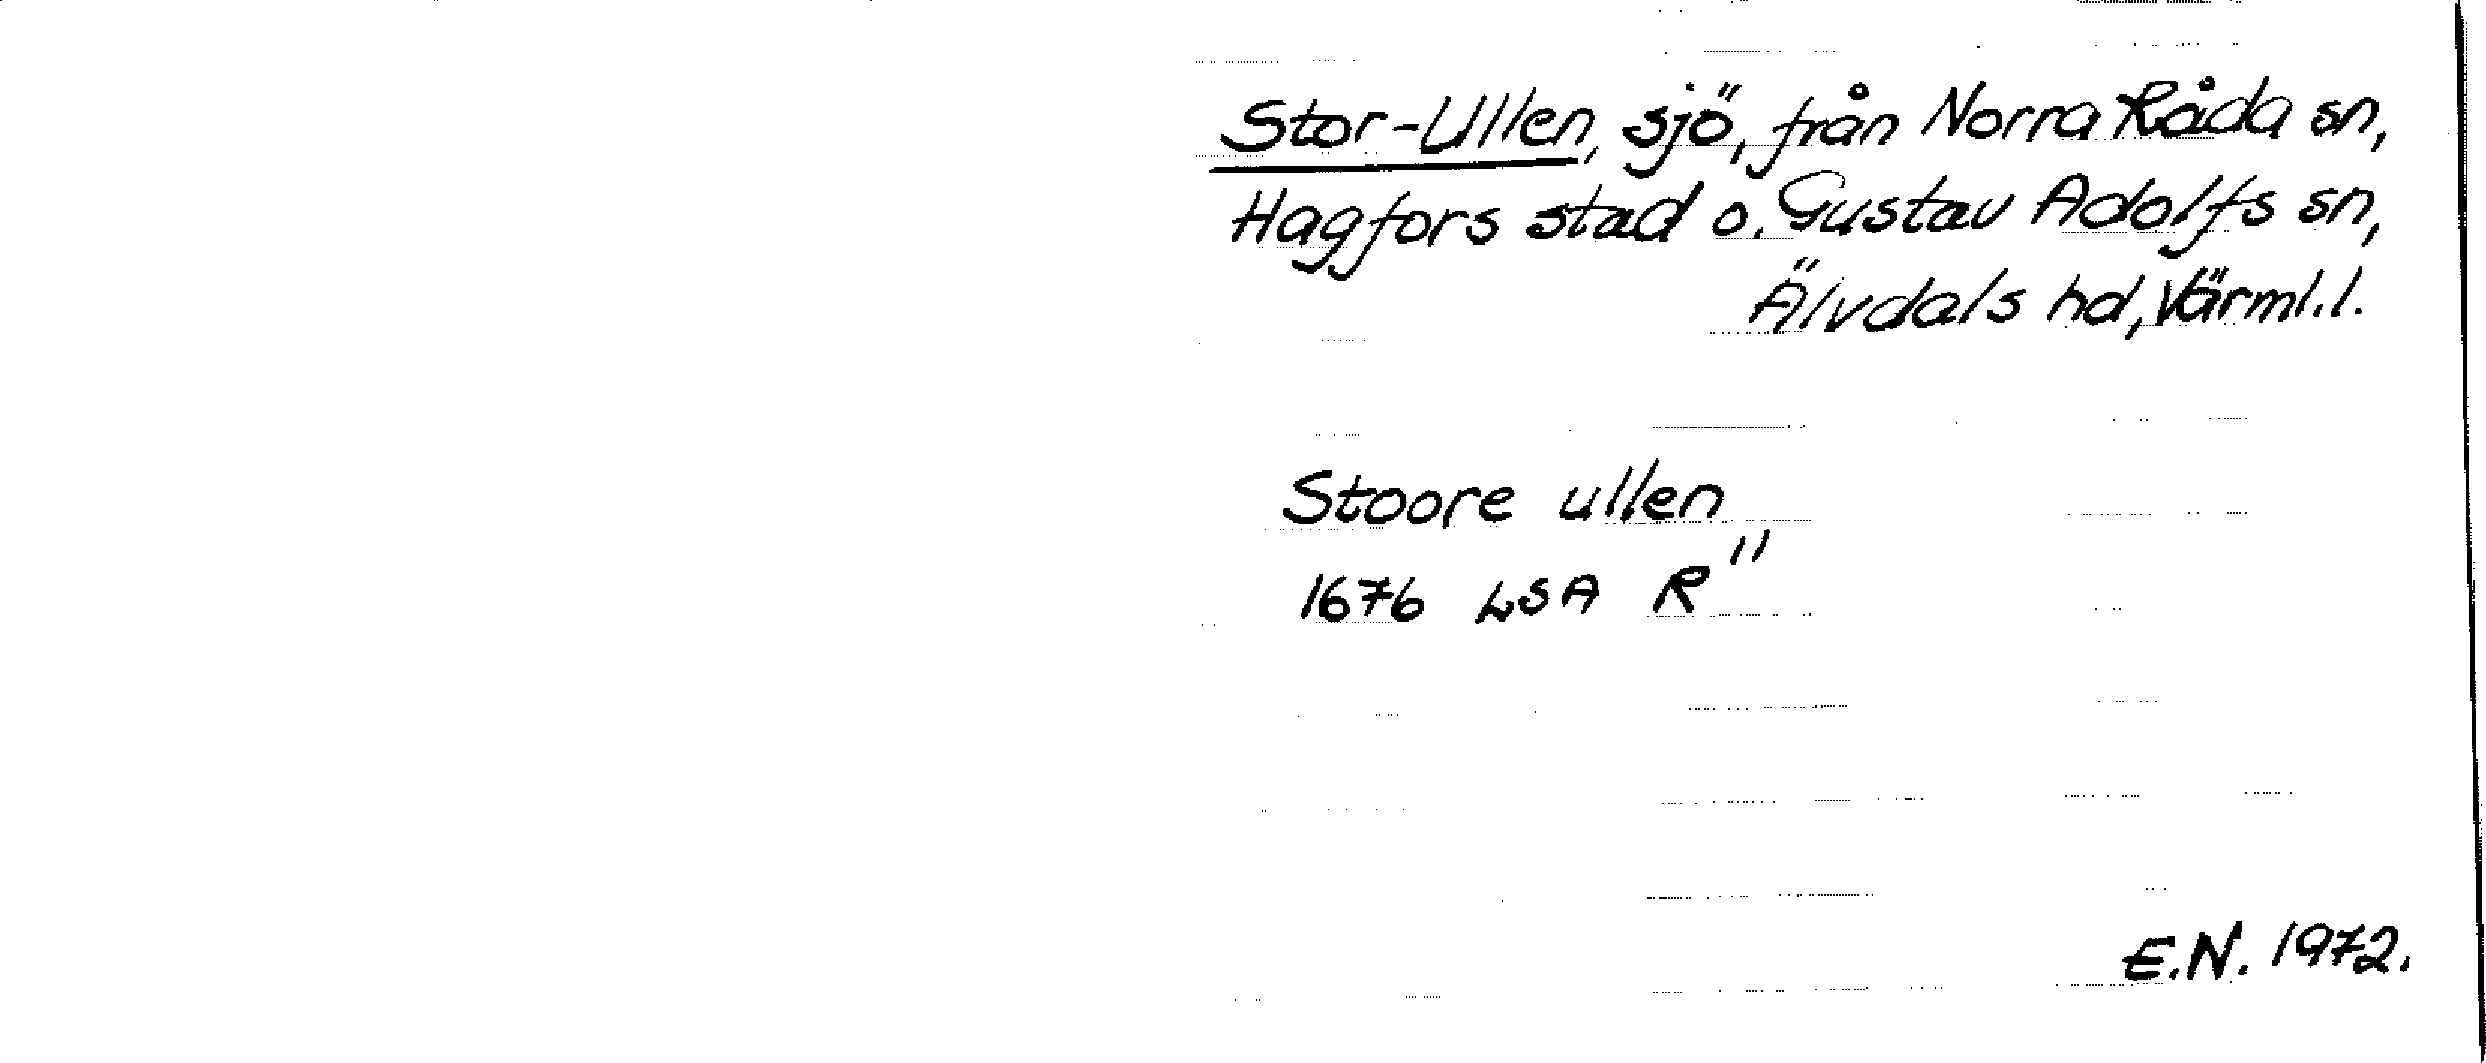 Stor-Ullen, sjö, från Norra Råda sn,
Hagfors stad o. Gustav Adolfs sn,
Älvdals hd, Värml.l.
Stoore ullen
1676 LSA R"
E.N. 1972.